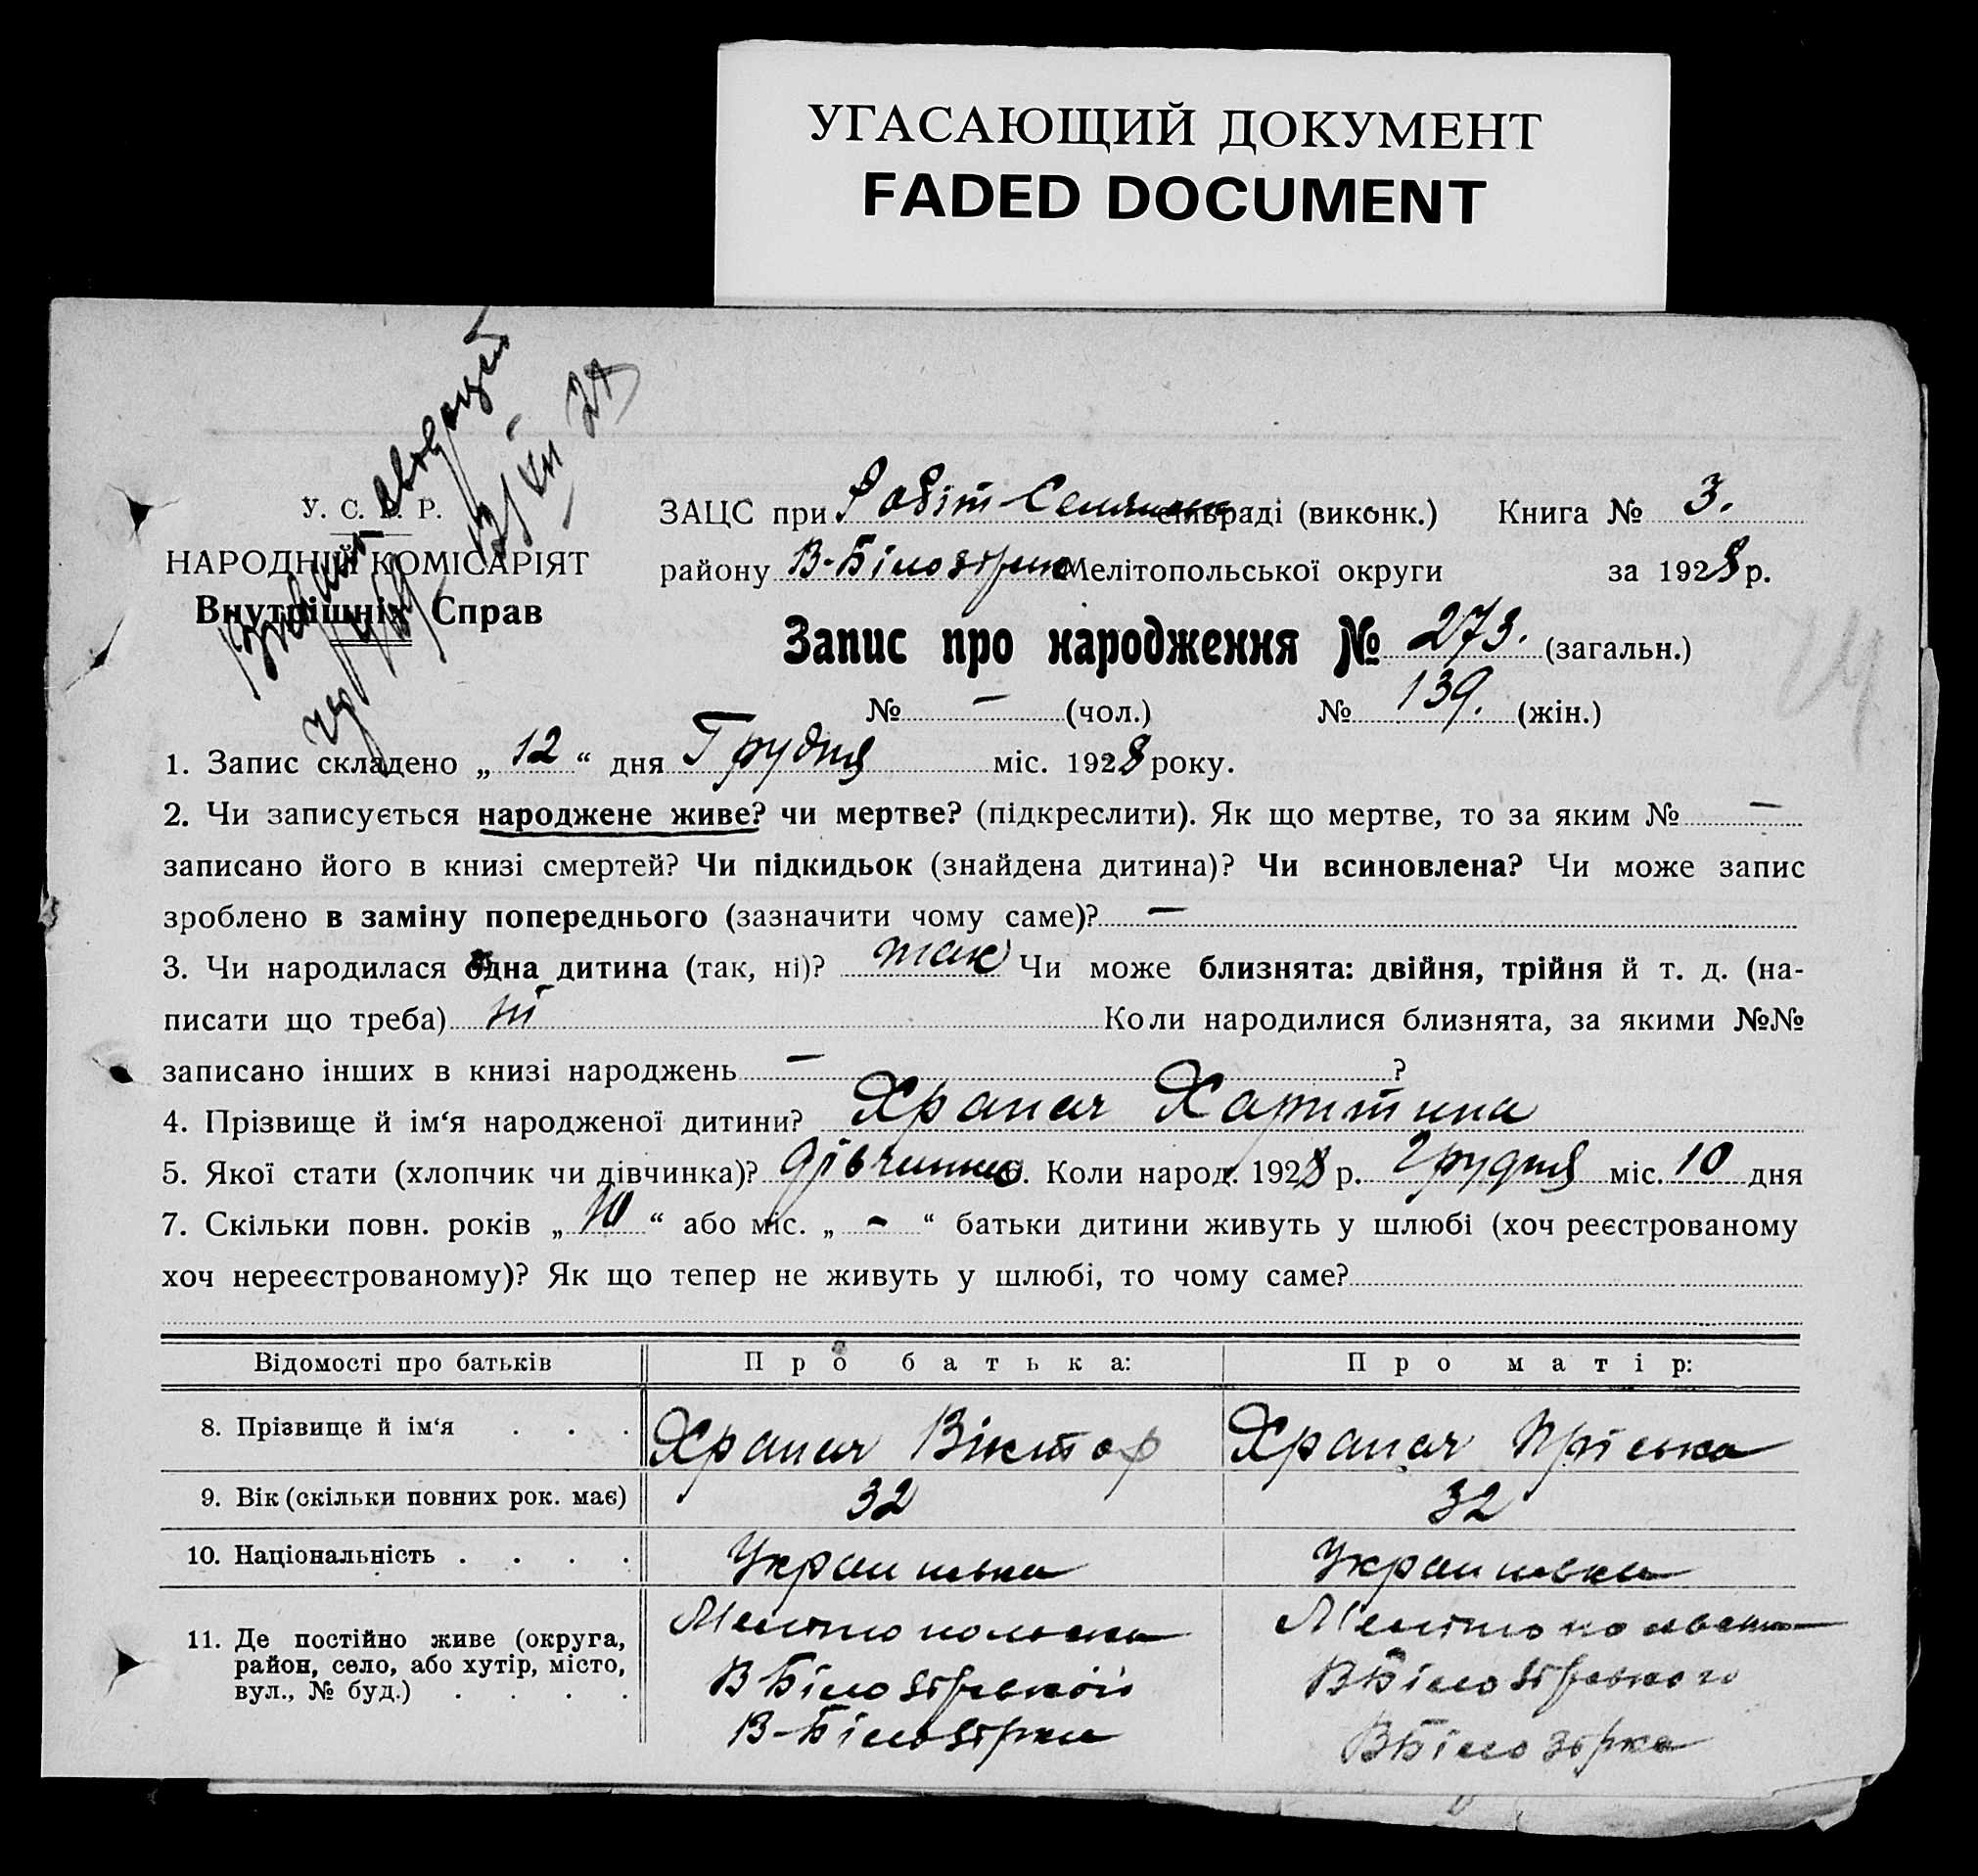 УГАСАЮЩИЙ ДОКУМЕНТ
FADED DOCUMENT
У. С. Р. Р.
НАРОДНІЙ КОМІСАРІЯТ
Внутрішніх Справ
ЗАЦС при Робіт-Селянськ сільраді (виконк.) Книга № 3.
району В-Білозірка Мелітопольської округи за 1928 р.
Запис про народження № 273. (загальн.)
№ — (чол.) № 139. (жін.)
1. Запис складено „ 12 “ дня Грудня міс. 1928 року.
2. Чи записується народжене живе? чи мертве? (підкреслити). Як що мертве, то за яким № —
записано його в книзі смертей? Чи підкидьок (знайдена дитина)? Чи всиновлена? Чи може запис
зроблено в заміну попереднього (зазначити чому саме)? —
3. Чи народилася одна дитина (так, ні)? так Чи може близнята: двійня, трійня й т. д. (на-
писати що треба) ні Коли народилися близнята, за якими №№
записано інших в книзі народжень — ?
4. Прізвище й ім‘я народженої дитини? Храпач Харитина
5. Якої стати (хлопчик чи дівчинка)? дівчинка 6. Коли народ. 1928 р. Грудня міс. 10 дня
7. Скільки повн. років „ 10 “ або міс. „ - “ батьки дитини живуть у шлюбі (хоч реєстрованому
хоч нереєстрованому)? Як що тепер не живуть у шлюбі, то чому саме?
Відомості про батьків Про батька: Про матір:
8. Прізвище й ім‘я . . . Храпач Віктор Храпач Пріська
9. Вік (скільки повних рок. має) 32 32
10. Національність . . . . Українька Українька
11. Де постійно живе (округа, район, село, або хутір, місто, вул., № буд.) . . . .
Мелітопольска
В Білозірській
В-Білозірка
Мелітопольська
ВБілозірського
ВБілозірка